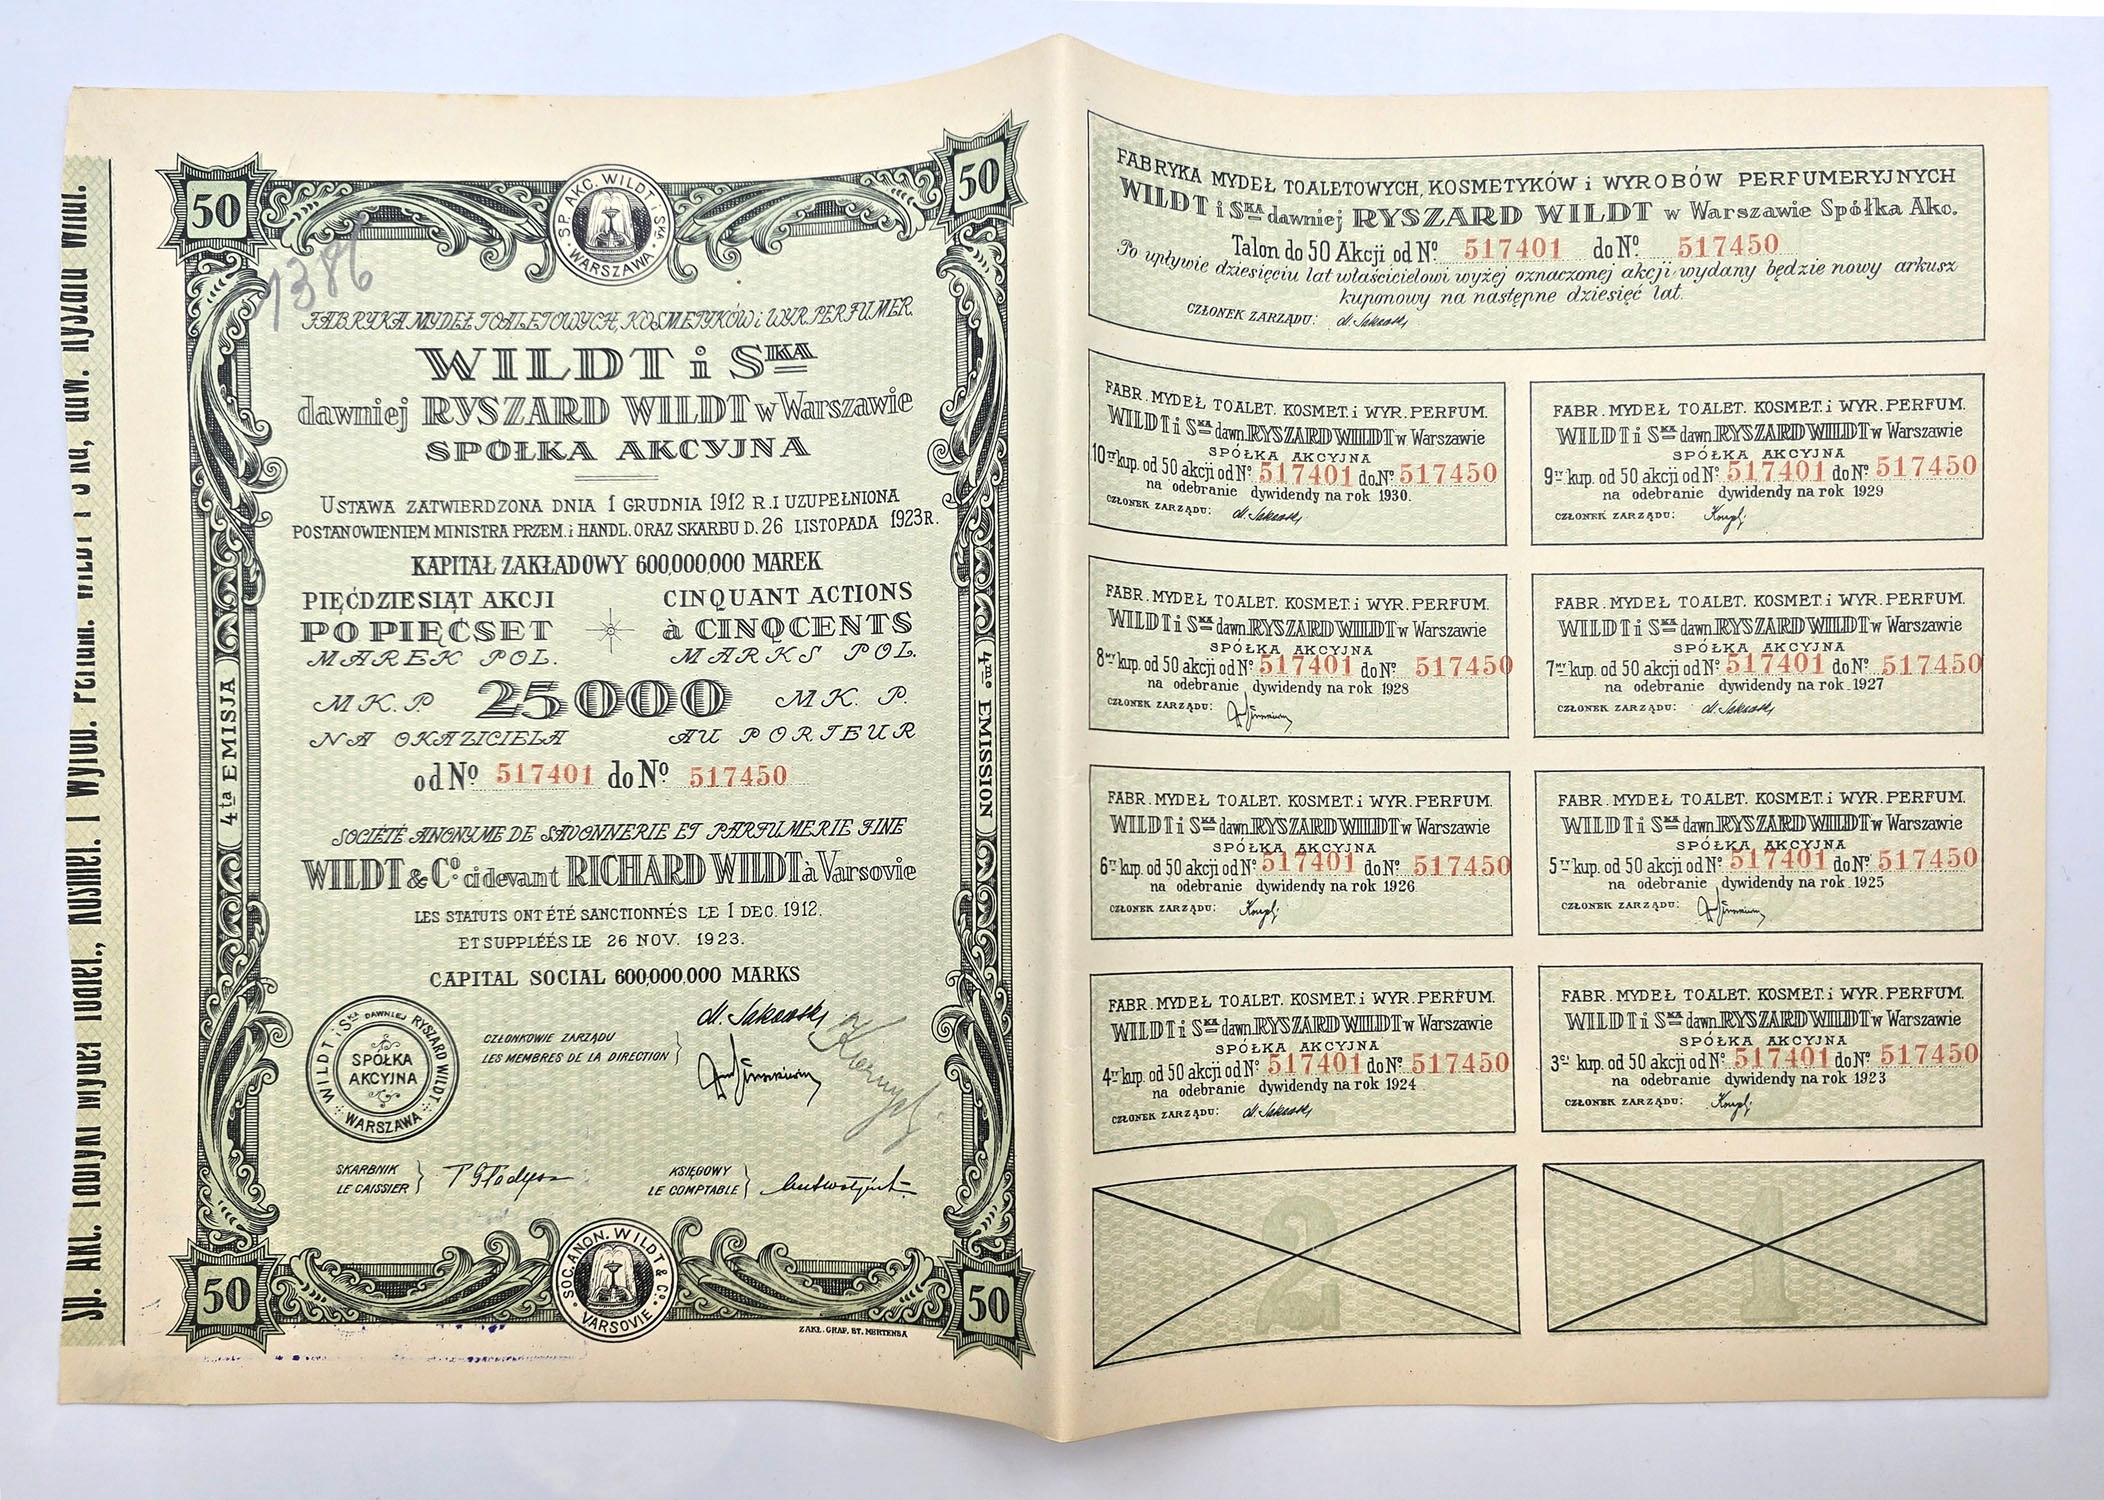 Sp. Akc. Fabryki Mydeł Toalet., Kosmet. i Wyrob. Perfum. WILDT i S-ka, daw. Ryszard Wildt.
50
50
SP. AKC. WILDT i SKA
WARSZAWA
1386
FABRYKA MYDEŁ TOALETOWYCH, KOSMETYKÓW i WYR. PERFUMER.
WILDT i SKA
dawniej RYSZARD WILDT w Warszawie
SPÓŁKA AKCYJNA
USTAWA ZATWIERDZONA DNIA 1 GRUDNIA 1912 R. I UZUPEŁNIONA
POSTANOWIENIEM MINISTRA PRZEM. i HANDL. ORAZ SKARBU D. 26 LISTOPADA 1923 R.
KAPITAŁ ZAKŁADOWY 600,000,000 MAREK
PIĘĆDZIESIĄT AKCJI CINQUANT ACTIONS
PO PIĘĆSET à CINQCENTS
MAREK POL. MARKS POL.
MK. P 25000 MK. P.
NA OKAZICIELA AU PORTEUR
od No 517401 do No 517450
4ta EMISJA
4me EMISSION
SOCIÉTÉ ANONYME DE SAVONNERIE ET PARFUMERIE FINE
WILDT & Co. ci devant RICHARD WILDT à Varsovie
LES STATUTS ONT ÉTÉ SANCTIONNÉS LE 1 DEC. 1912.
ET SUPPLÉÉS LE 26 NOV. 1923.
CAPITAL SOCIAL 600,000,000 MARKS
WILDT i SKA DAWNIEJ RYSZARD WILDT
SPÓŁKA
AKCYJNA
WARSZAWA
CZŁONKOWIE ZARZĄDU
LES MEMBRES DE LA DIRECTION
SKARBNIK
LE CAISSIER
KSIĘGOWY
LE COMPTABLE
50
50
SOC. ANON. WILDT & Co.
VARSOVIE
ZAKŁ. GRAF. ST. MERTENSA
FABRYKA MYDEŁ TOALETOWYCH, KOSMETYKÓW i WYROBÓW PERFUMERYJNYCH
WILDT i SKA dawniej RYSZARD WILDT w Warszawie Spółka Akc.
Talon do 50 Akcji od No. 517401 do No. 517450
Po upływie dziesięciu lat właścicielowi wyżej oznaczonej akcji wydany będzie nowy arkusz
kuponowy na następne dziesięć lat.
CZŁONEK ZARZĄDU:
FABR. MYDEŁ TOALET. KOSMET. i WYR. PERFUM.
WILDT i SKA dawn. RYSZARD WILDT w Warszawie
SPÓŁKA AKCYJNA
10ty kup. od 50 akcji od No. 517401 do No. 517450
na odebranie dywidendy na rok 1930.
CZŁONEK ZARZĄDU:
FABR. MYDEŁ TOALET. KOSMET. i WYR. PERFUM.
WILDT i SKA dawn. RYSZARD WILDT w Warszawie
SPÓŁKA AKCYJNA
9ty kup. od 50 akcji od No. 517401 do No. 517450
na odebranie dywidendy na rok 1929
CZŁONEK ZARZĄDU:
FABR. MYDEŁ TOALET. KOSMET. i WYR. PERFUM.
WILDT i SKA dawn. RYSZARD WILDT w Warszawie
SPÓŁKA AKCYJNA
8my kup. od 50 akcji od No. 517401 do No. 517450
na odebranie dywidendy na rok 1928
CZŁONEK ZARZĄDU:
FABR. MYDEŁ TOALET. KOSMET. i WYR. PERFUM.
WILDT i SKA dawn. RYSZARD WILDT w Warszawie
SPÓŁKA AKCYJNA
7my kup. od 50 akcji od No. 517401 do No. 517450
na odebranie dywidendy na rok 1927
CZŁONEK ZARZĄDU:
FABR. MYDEŁ TOALET. KOSMET. i WYR. PERFUM.
WILDT i SKA dawn. RYSZARD WILDT w Warszawie
SPÓŁKA AKCYJNA
6ty kup. od 50 akcji od No. 517401 do No. 517450
na odebranie dywidendy na rok 1926
CZŁONEK ZARZĄDU:
FABR. MYDEŁ TOALET. KOSMET. i WYR. PERFUM.
WILDT i SKA dawn. RYSZARD WILDT w Warszawie
SPÓŁKA AKCYJNA
5ty kup. od 50 akcji od No. 517401 do No. 517450
na odebranie dywidendy na rok 1925
CZŁONEK ZARZĄDU:
FABR. MYDEŁ TOALET. KOSMET. i WYR. PERFUM.
WILDT i SKA dawn. RYSZARD WILDT w Warszawie
SPÓŁKA AKCYJNA
4ty kup. od 50 akcji od No. 517401 do No. 517450
na odebranie dywidendy na rok 1924
CZŁONEK ZARZĄDU:
FABR. MYDEŁ TOALET. KOSMET. i WYR. PERFUM.
WILDT i SKA dawn. RYSZARD WILDT w Warszawie
SPÓŁKA AKCYJNA
3ci kup. od 50 akcji od No. 517401 do No. 517450
na odebranie dywidendy na rok 1923
CZŁONEK ZARZĄDU:
2
1